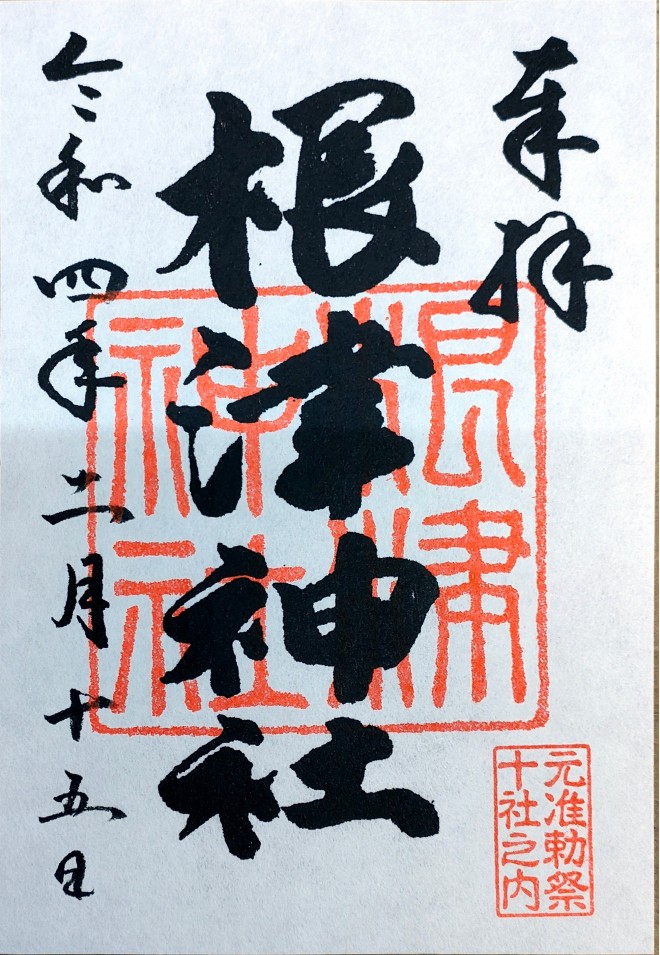 奉拝
根津神社
令和四年二月十五日
根津
神社
元准勅祭
十社之内